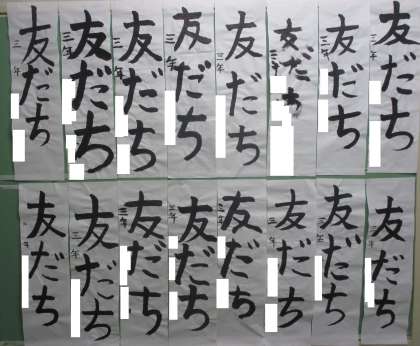 友だち
三年
友だち
三年
友だち
三年
友だち
三年
友だち
三年
友だち
三年
友だち
三年
友だち
三年
友だち
友だち
三年
友だち
三年
友だち
三年
友だち
三年
友だち
三年
友だち
三年
友だち
三年